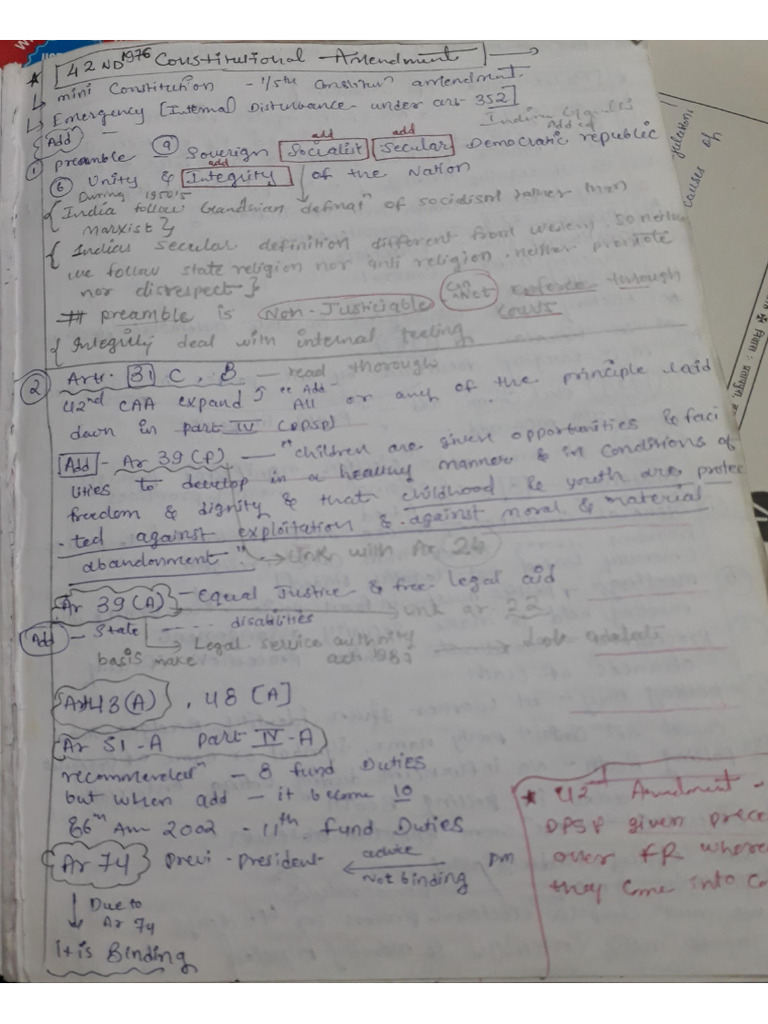 * 42ND 1976 Constitutional Amendment →
↳ mini Constitution - 1/5th Constitun amendment.
↳ Emergency [Internal Disturbance under ar 352]
Indira Gandhi
Added
Add
① preamble ⓐ Soverign add Socialist add Secular Democratic republic
ⓑ Unity & add Integrity of the Nation
During 1950's
{ India follow Gandhian definatn of socidism rather than
Marxist }
{ Indias secular definition different from western. so neither
we follow state religion nor anti religion. neither promote
nor disrespect }
# preamble is Non-Justiciable Can Not enforce through
Court
{ Integrity deal with internal feeling
② Art. 31 C, B — read thorough
42nd CAA expand " Add
All or any of the principle laid
down in part IV (DPSP)
Add - Ar 39(f) — "children are given opportunities & faci
lities to develop in a healthy manner & in conditions of
freedom & dignity & that childhood & youth are protec
-ted against exploitation & against moral & material
abandonment." → Link with Ar 24
Ar 39(A) - Equal Justice & free legal aid
→ Link ar 22
Add - State - - - - disabilities
→ Legal service authority → Lok adalat
basis make act 1987
Art 43(A), 48[A]
Ar 51-A Part IV-A
recommendatn - 8 fund Duties
but when add - it become 10
86th Am 2002 - 11th fund Duties
Ar 74 previ - president ← advice Not binding PM
↓ Due to
Ar 74
It is Binding
* 42nd Amendment -
DPSP given prece
over FR where
they come into co
causes of